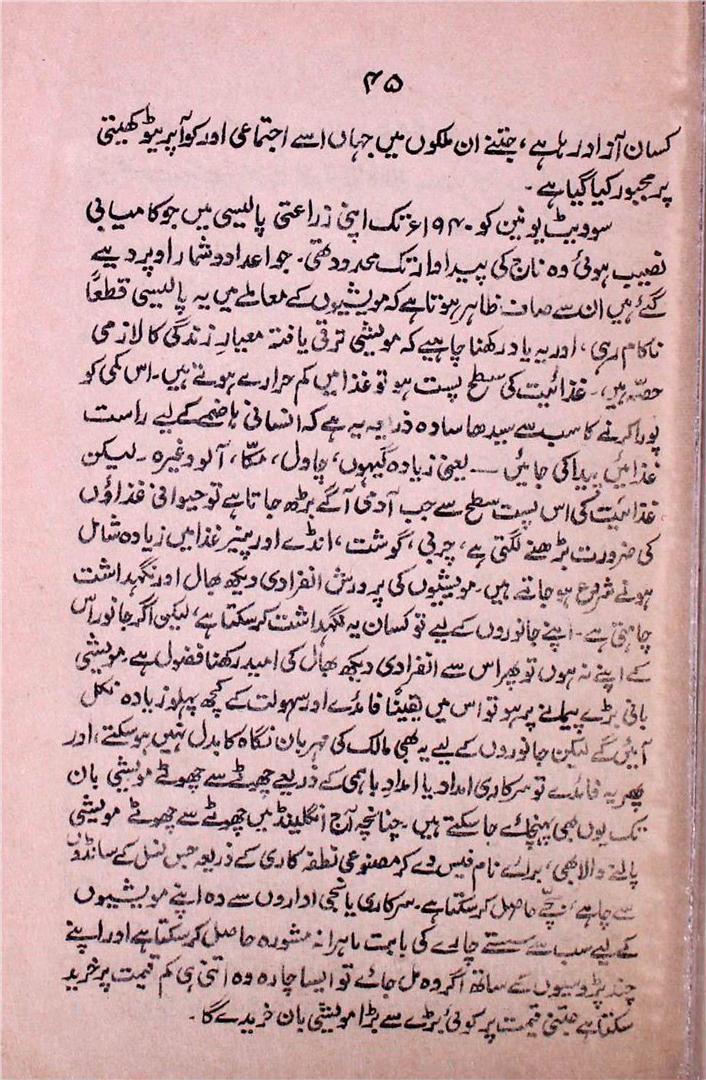 ۴۵
کسان آزاد رہا ہے، جتنے ان ملکوں میں جہاں اسے اجتماعی اور کوآپریٹو کھیتی
پر مجبور کیا گیا ہے۔
سوویٹ یونین کو ۱۹۴۰ء تک اپنی زراعتی پالیسی میں جو کامیابی
نصیب ہوئی وہ ناج کی پیداوار تک محدود تھی۔ جو اعداد و شمار اوپر دیے
گئے ہیں ان سے صاف ظاہر ہوتا ہے کہ مویشیوں کے معاملے میں یہ پالیسی قطعاً
ناکام رہی، اور یہ یاد رکھنا چاہیے کہ مویشی ترقی یافتہ معیارِ زندگی کا لازمی
حصّہ ہیں۔ غذائیت کی سطح پست ہو تو غذا میں کم حرارے ہوتے ہیں۔ اس کمی کو
پورا کرنے کا سب سے سیدھا سادہ ذریعہ یہ ہے کہ انسانی ہاضمے کے لیے راست
غذائیں پیدا کی جائیں — یعنی زیادہ گیہوں، چاول، مکّا، آلو وغیرہ۔ لیکن
غذائیت کی اس پست سطح سے جب آدمی آگے بڑھ جاتا ہے تو حیوانی غذاؤں
کی ضرورت بڑھنے لگتی ہے، چربی، گوشت، انڈے اور پنیر غذا میں زیادہ شامل
ہونے شروع ہو جاتے ہیں۔ مویشیوں کی پرورش انفرادی دیکھ بھال اور نگہداشت
چاہتی ہے۔ اپنے جانوروں کے لیے تو کسان یہ نگہداشت کر سکتا ہے، لیکن اگر جانور اس
کے اپنے نہ ہوں تو پھر اس سے انفرادی دیکھ بھال کی امید رکھنا فضول ہے۔ مویشی
بانی بڑے پیمانے پر ہو تو اس میں یقیناً فائدے اور سہولت کے کچھ پہلو زیادہ نکل
آئیں گے لیکن جانوروں کے لیے یہ بھی مالک کی مہربان نگاہ کا بدل نہیں ہو سکتے، اور
پھر یہ فائدے تو سرکاری امداد یا امدادِ باہمی کے ذریعے چھوٹے سے چھوٹے مویشی بان
تک یوں بھی پہنچائے جا سکتے ہیں۔ چنانچہ آج انگلینڈ میں چھوٹے سے چھوٹے مویشی
پالنے والا بھی، برائے نام فیس دے کر مصنوعی نطفہ کاری کے ذریعہ جس نسل کے سانڈوں
سے چاہے، بچّے حاصل کر سکتا ہے۔ سرکاری یا نجی اداروں سے وہ اپنے مویشیوں
کے لیے سب سے سستے چارے کی بابت ماہرانہ مشورہ حاصل کر سکتا ہے اور اپنے
چند پڑوسیوں کے ساتھ اگر وہ مل جائے تو ایسا چارہ وہ اتنی ہی کم قیمت پر خرید
سکتا ہے جتنی قیمت پر کوئی بڑے سے بڑا مویشی بان خریدے گا۔